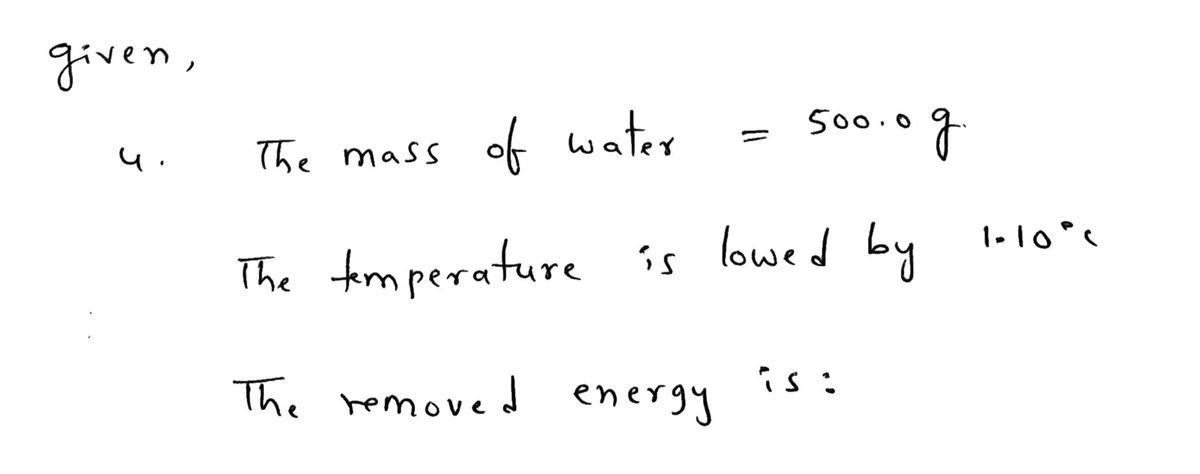 given,
4. The mass of water = 500.0 g.
The temperature is lowed by 1.10°C
The removed energy is: